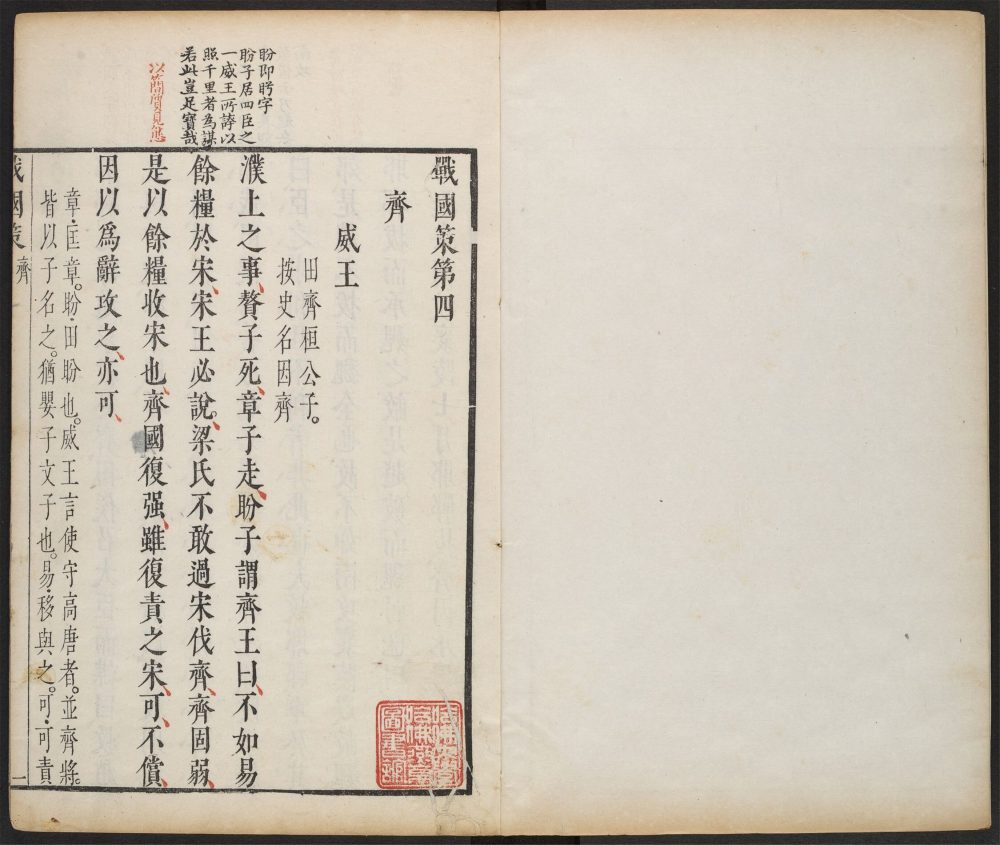 戰國策第四
齊
威王
田齊桓公子。
按史名因齊
濮上之事、贅子死、章子走、盼子謂齊王曰、不如易
餘糧於宋、宋王必說。梁氏不敢過宋伐齊、齊固弱、
是以餘糧收宋也、齊國復强、雖復責之宋、可、不償、
因以爲辭攻之、亦可、
章・匡章。盼・田盼也。威王言使守高唐者。並齊將。
皆以子名之。猶嬰子文子也。易・移與之。可・可責
戰國策 齊 一
盼即盻字
盼子居四臣之
一威王所謂以
照千里者為謀
若此豈足寶哉
以簡質見態
哈佛大學
哈佛燕京
圖書館